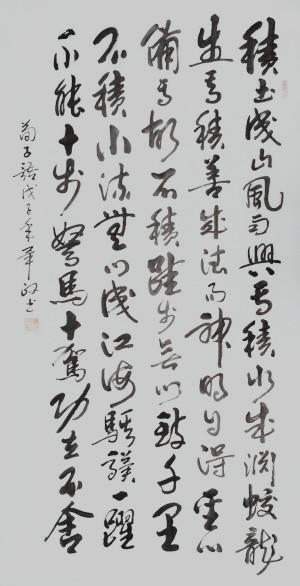 積土成山風雨興焉積水成渊蛟龍
生焉積善成德而神明自得聖心
備焉故不積跬步无以致千里
不積小流無以成江海騏驥一躍
不能十步駑馬十駕功在不舍
荀子語戊子